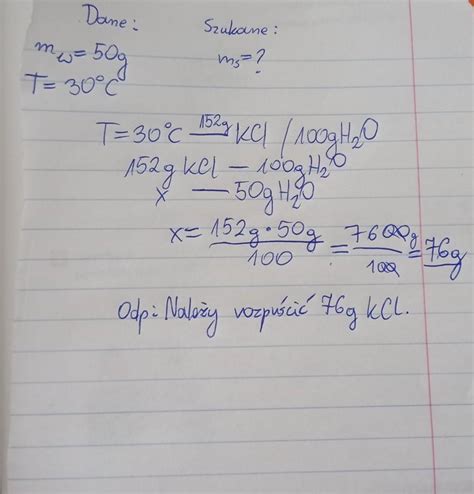 Dane: Szukane:
m_w = 50g m_s = ?
T = 30°C
T = 30°C 152g KCl / 100g H₂O
152g KCl — 100g H₂O
x — 50g H₂O
x = 152g · 50g / 100 = 7600g / 100 = 76g
Odp: Należy rozpuścić 76g KCl.